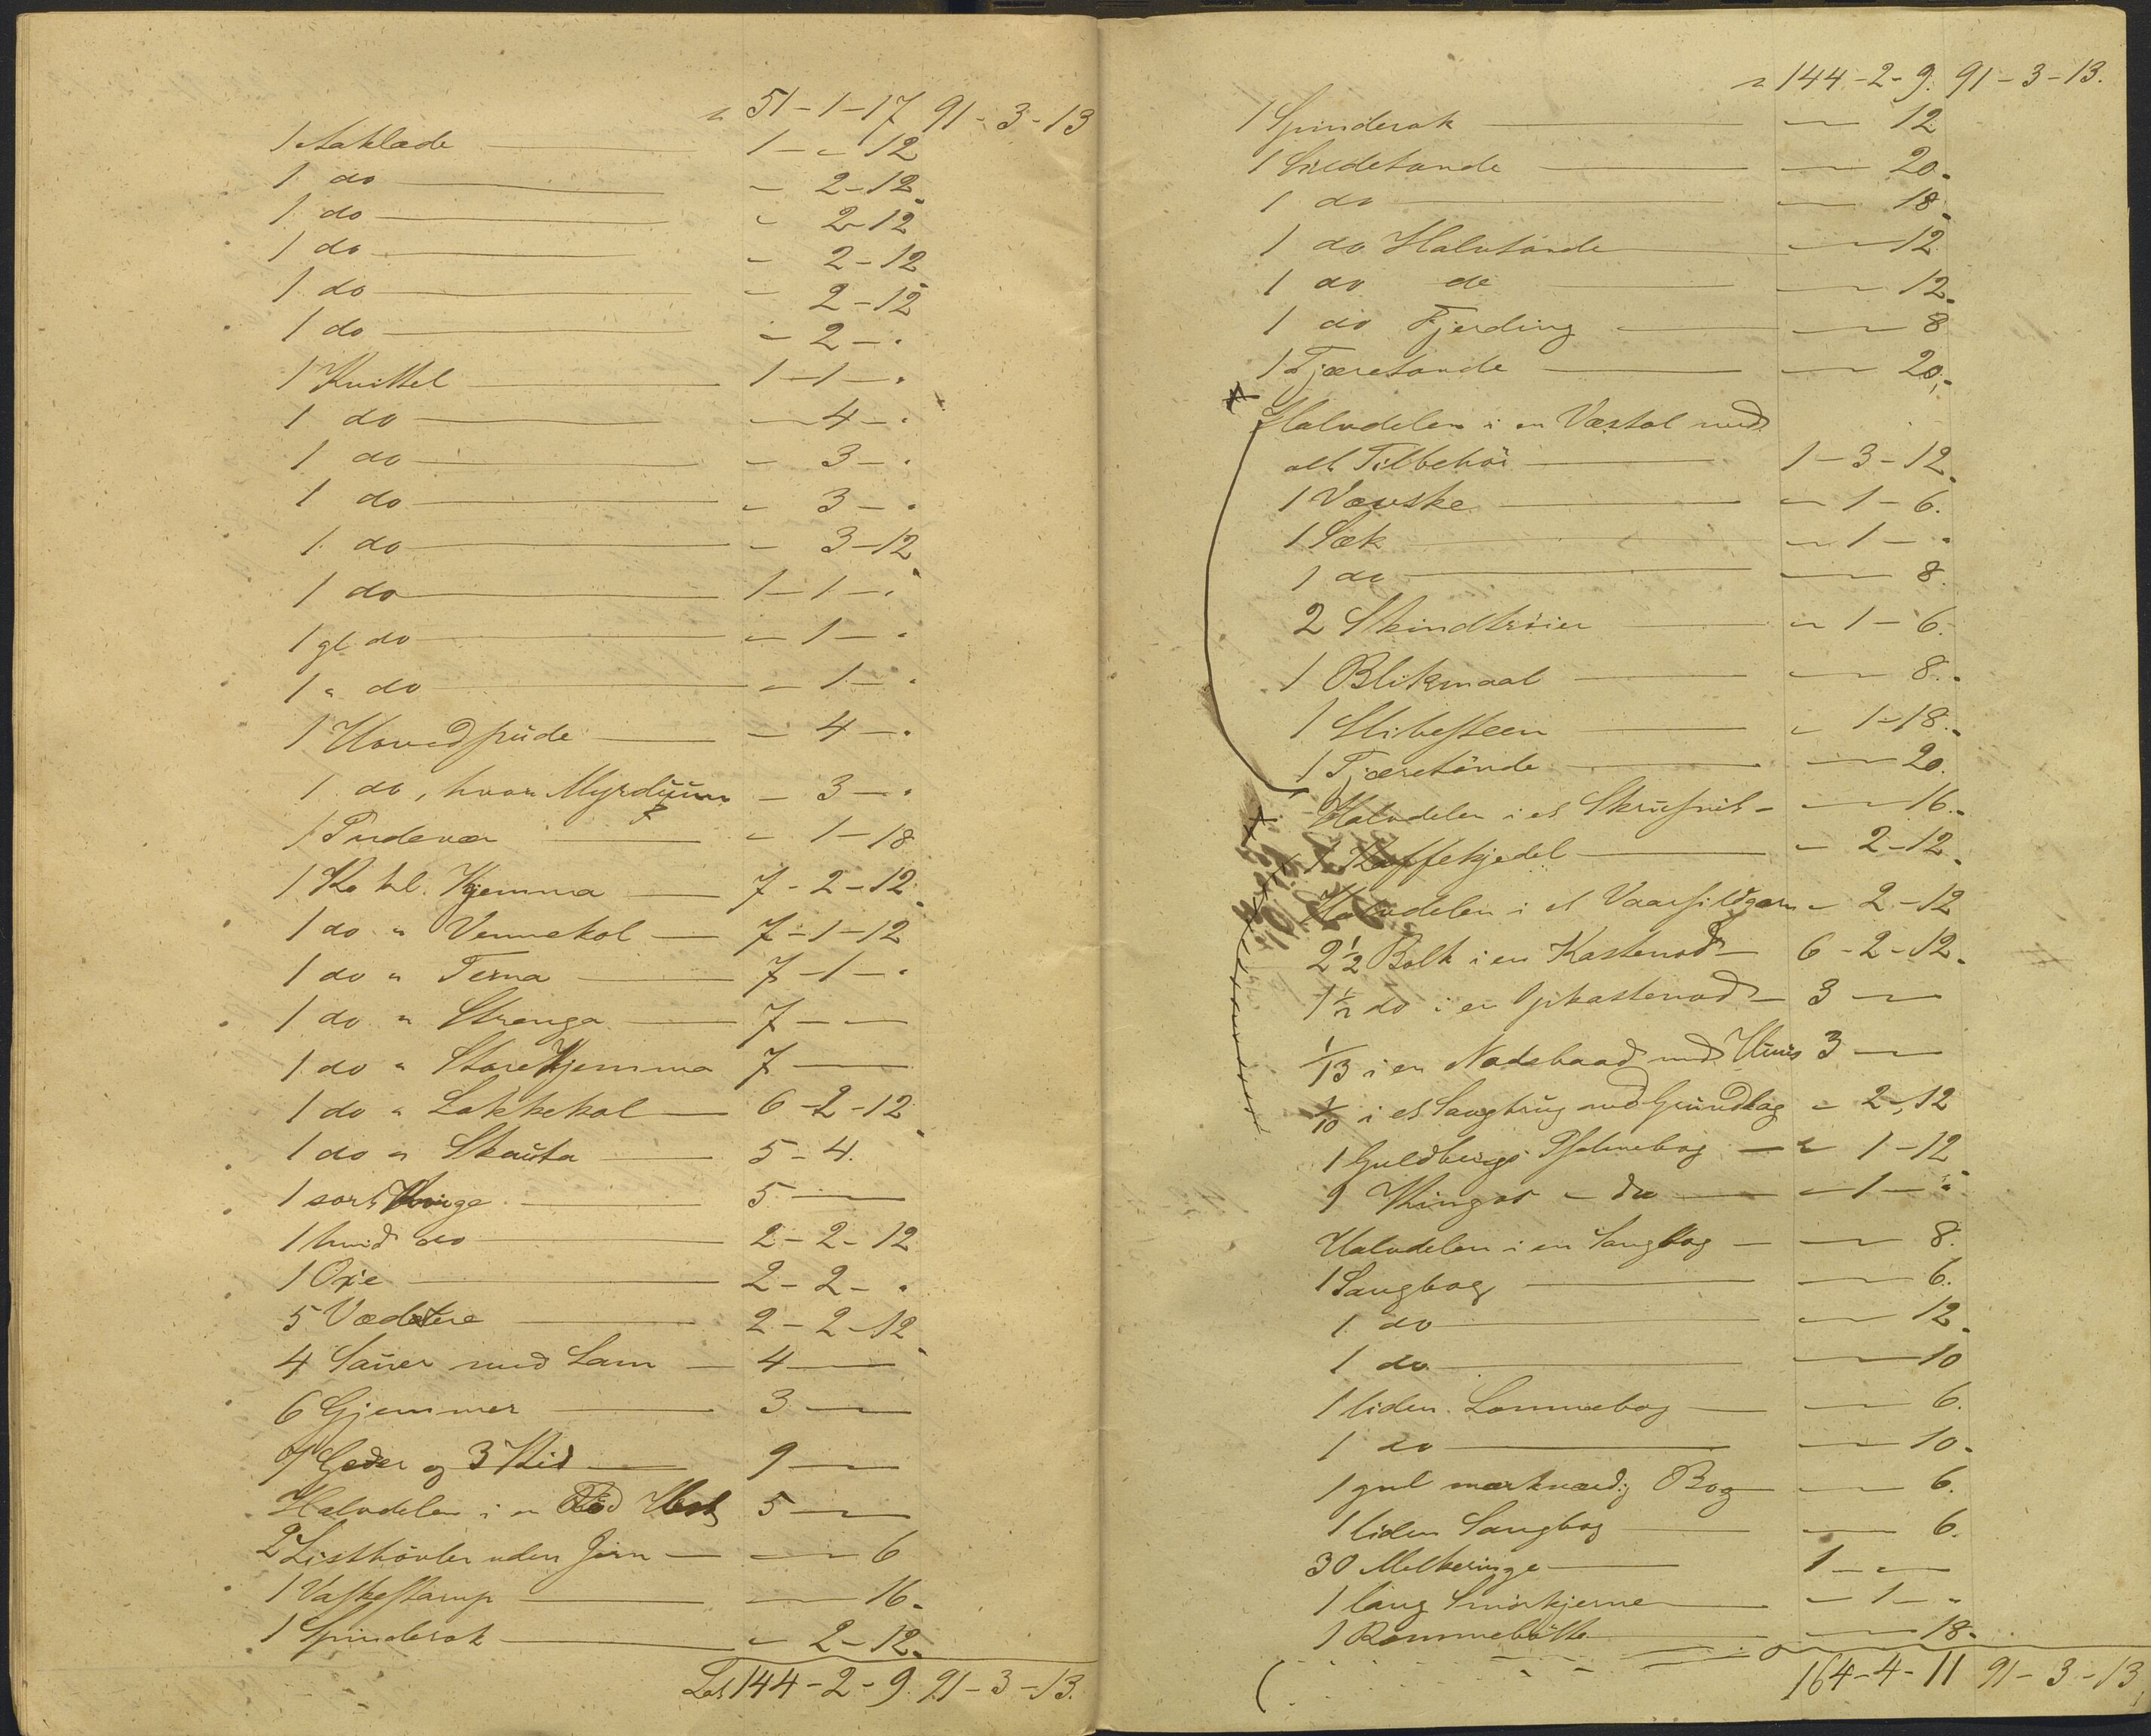 " 51-1-17 91-3-13
1 Aaklæde 1 - " 12
1 do " 2-12
1 do " 2-12
1 do " 2-12
1 do " 2-12
1 do " 2 - "
1 Knittel 1-1-"
1 do " 4-"
1 do " 3-"
1 do " 3-"
1 do " 3-12
1 do 1-1-"
1 gl do " 1-"
1 " do " 1-"
1 Hovedpude " 4-"
1 do, hvor Myrduun " 3-"
1 Pudevær " 1-18
1 Ko kl. Kjemma 7-2-12
1 do " Vennekol 7-1-12
1 do " Terna 7-1-"
1 do " Strenga 7 - "
1 do " Store Kjemma 7 - "
1 do " Lakkekol 6-2-12
1 do " Skauta 5-4.
1 sort Kvige 5 - "
1 hvid do 2-2-12
1 Oxe 2-2-"
5 Vædere 2-2-12
4 Sauer med Lam 4 - "
6 Gjemmer 3 - "
7 Geder og 3 Kid 9 - "
Halvdelen i en Rød Hest 5 - "
2 Listhøvler uden Jern " 6
1 Vaskestamp " 16
1 Spinderok " 2-12
Lat 144-2-9. 91-3-13.
" 144-2-9. 91-3-13.
1 Spinderok " 12
1 Sildetønde " 20
1 do " 18
1 do Halvtønde " 12
1 do do " 12
1 do Fjerding " 8
1 Tjæretønde " 20
Halvdelen i en Væstol med
alt Tilbehør 1-3-12
1 Væske " 1-6.
1 Sæk " 1-"
1 do " 8.
2 Skindtrøier " 1-6.
1 Blikmaal " 8.
1 Slibesteen " 1-18
1 Tjæretønde " 20.
Halvdelen i et " 16.
1 Kaffekjedel " 2-12
Halvdelen i et Vaarsildgarn " 2-12
2½ Bolk i en Kastenod 6-2-12
1½ do i en Opkastenod 3 - "
1/13 i en Nodebaad med Huus 3 - "
1/10 i et med " 2-12
1 Guldbergs Psalmebog " 1-12
1 Kingos " do " 1-"
Halvdelen i en Sangbog " 8.
1 Sangbog " 6.
1 do " 12
1 do " 10
1 liden Lommebog " 6.
1 do " 10
1 gul mærkværdig Bog " 6.
1 liden Sangbog " 6.
30 Melkeringe 1 - "
1 lang Smørkjerne " 1-"
1 Rømmebøtte " 18
164-4-11 91-3-13